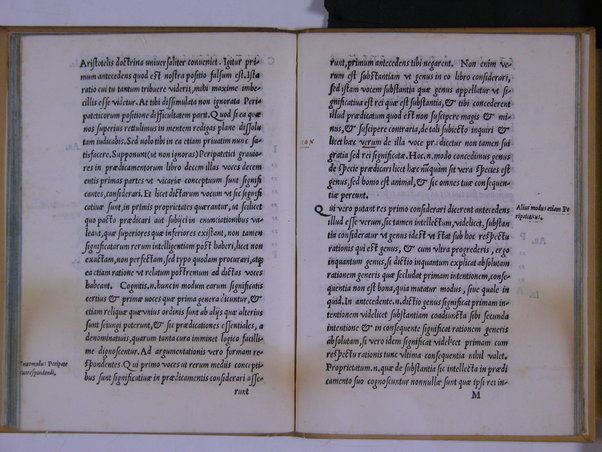 Aristotelis doctrina universaliter conveniet. Igitur pri⸗
mum antecedens quod est nostra positio falsum est. Ista
ratio cui tu tantum tribuere videris, mihi maxime imbe⸗
cillis esse videtur. At tibi dissimulata non ignorata Peri⸗
pateticorum positione difficultatem parit. Quod si ea quæ
nos superius rettulimus in mentem redigas plane dissolu⸗
tam iudicabis. Sed uolo tibi in ea etiam priuatim nunc sa⸗
tisfacere. Supponunt (ut non ignoras) Peripatetici grauio⸗
res in prædicamentorum libro decem illas voces decem
entis primas partes vt vicariæ conceptuum sunt signifi
cantes, considerari. Et licet dictarum vocum vt sic signifi
catiuæ sunt, in primis proprietates quærantur, ut scilicet
quo pacto prædicari aut subijci in enunciationibus va⸗
leant, quæ superiores quæ inferiores existant, non tamen
significatarum rerum intelligentiam post haberi, licet non
exactam, non perfectam, sed typo quodam procurari, atq;
ea etiam ratione vt relatum postremum ad dictas voces
habeant. Cognitis .n. hunc in modum earum significatis
certius & primæ voces quæ prima genera dicuntur, &
etiam reliquæ quæ vnius ordinis sunt ab alijs quæ alterius
sunt seiungi poterunt, & sic prædicationes essentiales, a
denominatiuis, quarum tanta cura imminet logico facilli⸗
me dignoscentur. Ad argumentationis vero formam re⸗
spondentes. Qui primo voces ut rerum mediis concepti⸗
bus sunt significatiuæ in prædicamentis considerari asse⸗
runt
respondendi,
runt, primum antecedens tibi negarent. Non enim ve⸗
rum est substantiam vt genus in eo libro considerari,
sed istam vocem substantia quæ genus appellatur vt si⸗
gnificatiua est rei quæ est substantia, & tibi concederent
illud prædicatum quod est non suscipere magis & mi⸗
nus, & suscipere contraria, de tali subiecto inquiri &
licet hæc verum de illa voce prædicetur non tamen sui
gratia sed rei significatæ. Hoc .n. modo concedimus genus
de specie prædicari licet hæc nusquam sit vera species est
genus, sed homo est animal, & sic omnes tuæ consequen⸗
tiæ pereunt.
Qui vero putant res primo considerari dicerent antecedens
illud esse verum, sic tamen intellectum, videlicet, substan⸗
tia consideratur vt genus idest vt stat sub hoc respectu
rationis qui est genus, & cum ultra progrederis, ergo
inquantum genus, si dictio inquantum explicat absolutam
rationem generis quæ secludat primam intentionem, conse⸗
quentia non est bona, quia mutatur modus, siue quale in
quid. In antecedente .n. dictio genus significat primam in⸗
tentionem videlicet substantiam coadiuncta sibi secunda
intentione & in consequente significat rationem generis
absolutam, si vero idem significat videlicet primam cum
respectu rationis tunc ultima consequentia nihil valet.
Proprietatum .n. quæ de substantia sic intellecta in prædi
camento suo cognoscuntur nonnullæ sunt quæ ipsi rei in⸗
M
Alius modus eiusdem Pe
ripateticus.